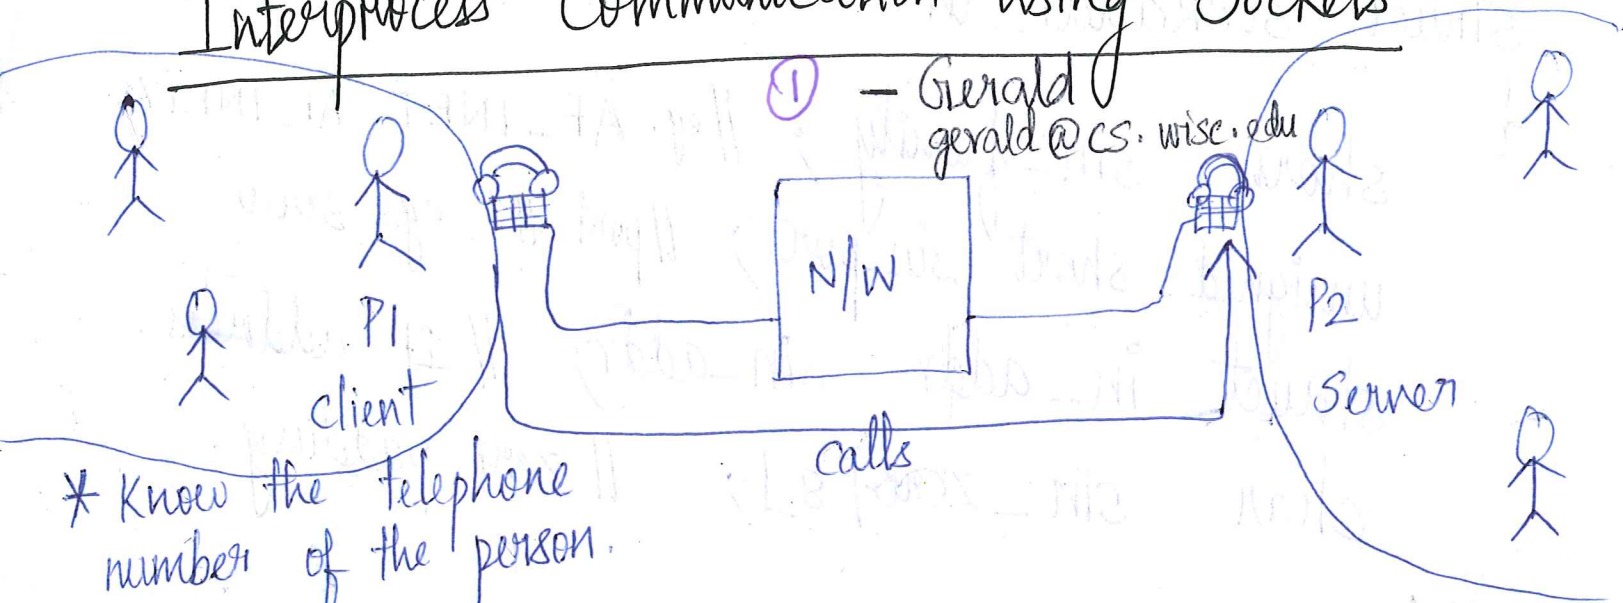 Interprocess Communication using Sockets
① - Gerald
gerald@cs.wisc.edu
N/W
P1
P2
client
Server
calls
* Know the telephone
number of the person.